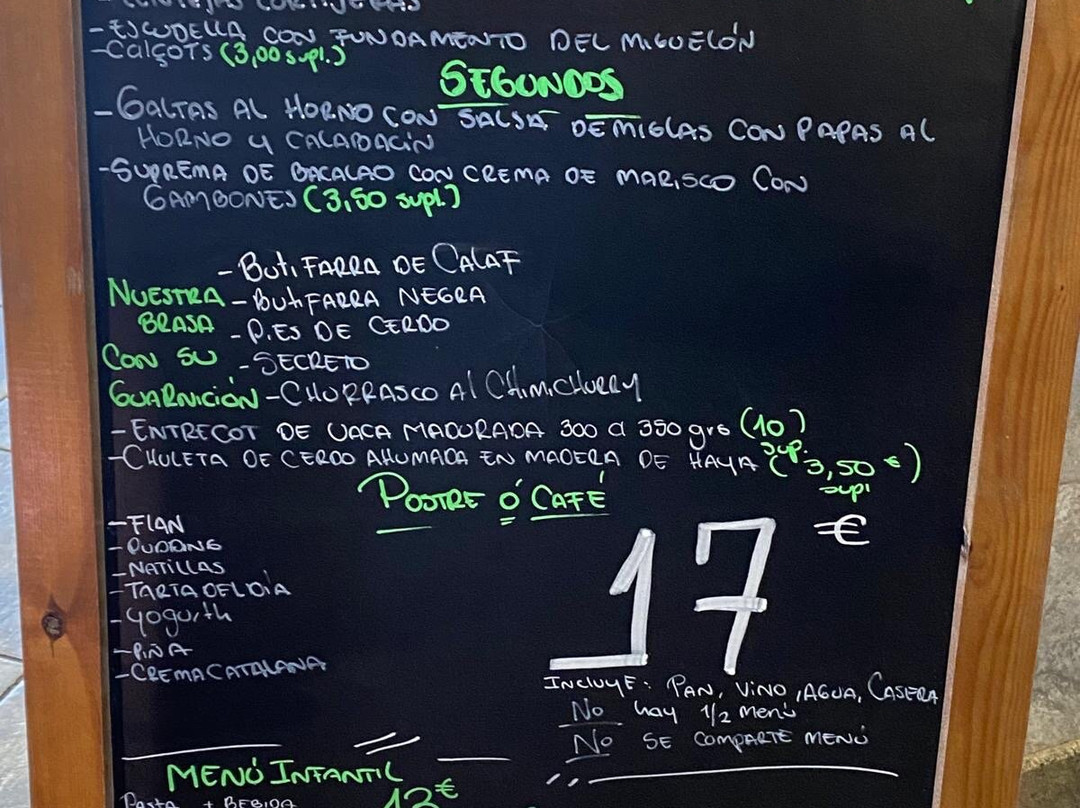 - LENTEJAS CORTIJERAS
- ESCUDELLA CON FUNDAMENTO DEL MIGUELÓN
- Calçots (3,00 supl.)
SEGUNDOS
- GALTAS AL HORNO CON SALSA DE MIGLAS CON PAPAS AL
HORNO Y CALABACÍN
- SUPREMA DE BACALAO CON CREMA DE MARISCO CON
GAMBONES (3,50 supl.)
- BUTIFARRA DE CALAF
NUESTRA - BUTIFARRA NEGRA
BRASA - PIES DE CERDO
CON SU - SECRETO
GUARNICIÓN - CHURRASCO Al CHIMICHURRY
- ENTRECOT DE VACA MADURADA 300 a 350 grs (10)
sup.
- CHULETA DE CERDO AHUMADA EN MADERA DE HAYA (3,50 €)
supl
POSTRE Ó CAFÉ
- FLAN
- PUDDING
- NATILLAS
- TARTA DEL DÍA
- yogurth
- PIÑA
- CREMA CATALANA
17 €
INCLUYE: PAN, VINO, AGUA, CASERA
No hay 1/2 menú
No SE COMPARTE MENÚ
MENÚ INFANTIL
Pasta + BEBIDA 12€